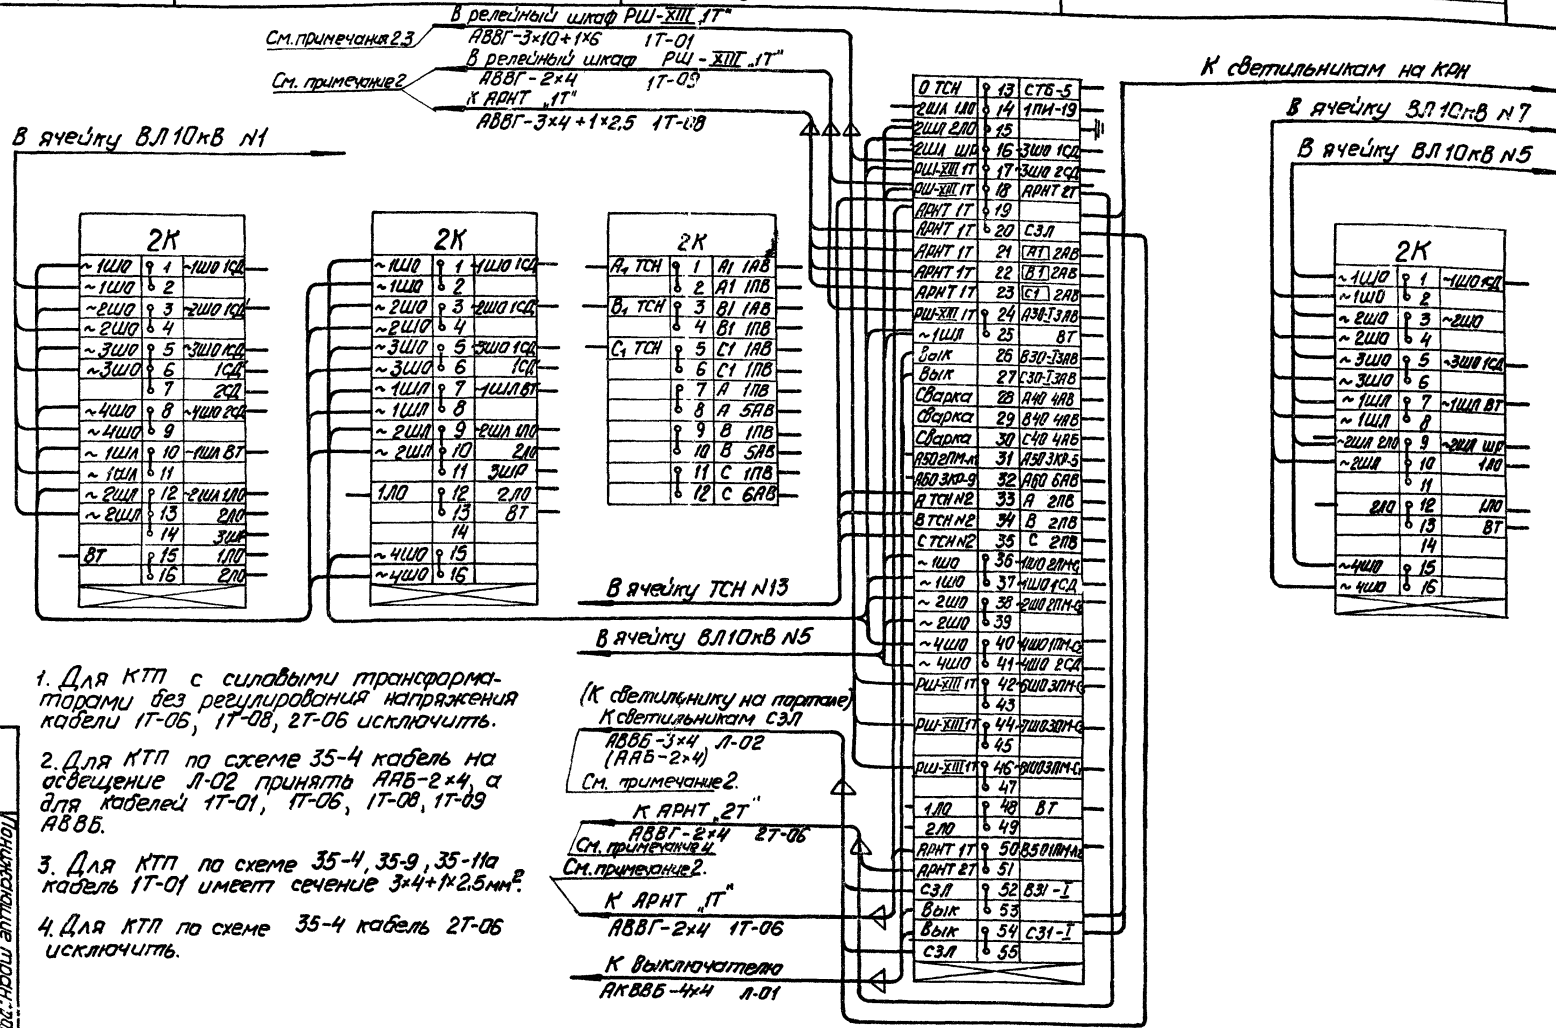 В релейный шкаф РШ-XIII „1Т"
АВВГ-3×10+1×6 1Т-01
См. примечания 2,3
В релейный шкаф РШ-XIII „1Т"
АВВГ-2×4 1Т-09
См. примечание 2
К АРНТ „1Т"
АВВГ-3×4+1×2,5 1Т-08
К светильникам на КРН
В ячейку ВЛ 10кВ N7
В ячейку ВЛ 10кВ N5
В ячейку ВЛ 10кВ N1
2К
~1ШО 1 ~1ШО 1СД
~1ШО 2
~2ШО 3 ~2ШО 1СД
~2ШО 4
~3ШО 5 ~3ШО 1СД
~3ШО 6 1СД
7 2СД
~4ШО 8 ~4ШО 2СД
~4ШО 9
~1ШЛ 10 ~1ШЛ ВТ
~1ШЛ 11
~2ШЛ 12 ~2ШЛ 1ЛО
~2ШЛ 13 2ЛО
14 3ШР
ВТ 15 1ЛО
16 2ЛО
2К
~1ШО 1 ~1ШО 1СД
~1ШО 2
~2ШО 3 ~2ШО 1СД
~2ШО 4
~3ШО 5 ~3ШО 1СД
~3ШО 6 1СД
~1ШЛ 7 ~1ШЛ ВТ
~1ШЛ 8
~2ШЛ 9 ~2ШЛ 1ЛО
~2ШЛ 10 2ЛО
11 3ШР
1ЛО 12 2ЛО
13 ВТ
14
~4ШО 15
~4ШО 16
2К
А₁ ТСН 1 А1 1АВ
2 А1 1ПВ
В₁ ТСН 3 В1 1АВ
4 В1 1ПВ
С₁ ТСН 5 С1 1АВ
6 С1 1ПВ
7 А 1ПВ
8 А 5АВ
9 В 1ПВ
10 В 5АВ
11 С 1ПВ
12 С 6АВ
0 ТСН 13 СТ6-5
2ШЛ 1ЛО 14 1ПИ-19
2ШЛ 2ЛО 15
2ШЛ ШР 16 ~3ШО 1СД
РШ-XIII 1Т 17 ~3ШО 2СД
РШ-XIII 1Т 18 АРНТ 2Т
АРНТ 1Т 19
АРНТ 1Т 20 СЗЛ
АРНТ 1Т 21 А1 2АВ
АРНТ 1Т 22 В1 2АВ
АРНТ 1Т 23 С1 2АВ
РШ-XIII 1Т 24 А30-I 3АВ
~1ШЛ 25 ВТ
Вык 26 В30-I 3АВ
Вык 27 С30-I 3АВ
Сварка 28 А40 4АВ
Сварка 29 В40 4АВ
Сварка 30 С40 4АБ
31 А50 3КР-5
А60 3КР-9 32 А60 6АВ
А ТСН N2 33 А 2ПВ
В ТСН N2 34 В 2ПВ
С ТСН N2 35 С 2ПВ
~1ШО 36
~1ШО 37 ~1ШО 1СД
~2ШО 38
~2ШО 39
~4ШО 40
~4ШО 41 ~4ШО 2СД
РШ-XIII 1Т 42
43
РШ-XIII 1Т 44
45
РШ-XIII 1Т 46
47
1ЛО 48 ВТ
2ЛО 49
АРНТ 1Т 50
АРНТ 2Т 51
СЗЛ 52 В31-I
Вык 53
Вык 54 С31-I
СЗЛ 55
2К
~1ШО 1 ~1ШО 1СД
~1ШО 2
~2ШО 3 ~2ШО
~2ШО 4
~3ШО 5 ~3ШО 1СД
~3ШО 6
~1ШЛ 7 ~1ШЛ ВТ
~1ШЛ 8
~2ШЛ 2ЛО 9 ~2ШЛ ШР
~2ШЛ 10 1ЛО
11
2ЛО 12 1ЛО
13 ВТ
14
~4ШО 15
~4ШО 16
В ячейку ТСН N13
В ячейку ВЛ 10кВ N5
(К светильнику на портале)
К светильникам СЗЛ
АВВБ-3×4 Л-02
(ААБ-2×4)
См. примечание 2.
К АРНТ „2Т"
АВВГ-2×4 2Т-06
См. примечание 4
См. примечание 2.
К АРНТ „1Т"
АВВГ-2×4 1Т-06
К выключателю
АКВВБ-4×4 Л-01
1. Для КТП с силовыми трансформа-
торами без регулирования напряжения
кабели 1Т-06, 1Т-08, 2Т-06 исключить.
2. Для КТП по схеме 35-4 кабель на
освещение Л-02 принять ААБ-2×4, а
для кабелей 1Т-01, 1Т-06, 1Т-08, 1Т-09
АВВБ.
3. Для КТП по схеме 35-4, 35-9, 35-11а
кабель 1Т-01 имеет сечение 3×4+1×2,5мм².
4. Для КТП по схеме 35-4 кабель 2Т-06
исключить.